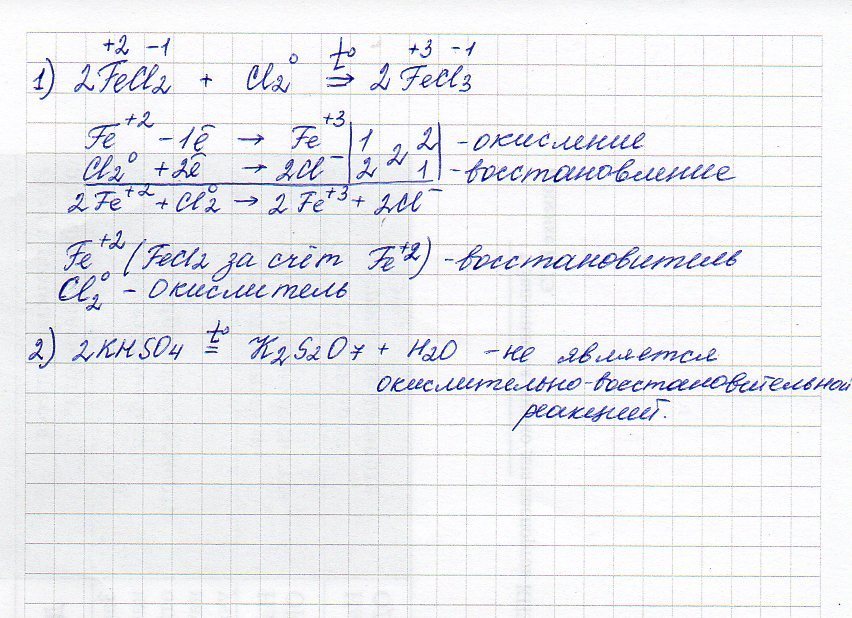 +2 -1 0 t° +3 -1
1) 2FeCl2 + Cl2 ⇒ 2FeCl3
Fe+2 - 1ē → Fe+3 | 1 2 | - окисление
Cl2 0 + 2ē → 2Cl- | 2 2 1 | - восстановление
2Fe+2 + Cl2 0 → 2Fe+3 + 2Cl-
Fe+2 (FeCl2 за счёт Fe+2) - восстановитель
Cl2 0 - окислитель
2) 2KHSO4 t° = K2S2O7 + H2O - не является
окислительно-восстановительной
реакцией.